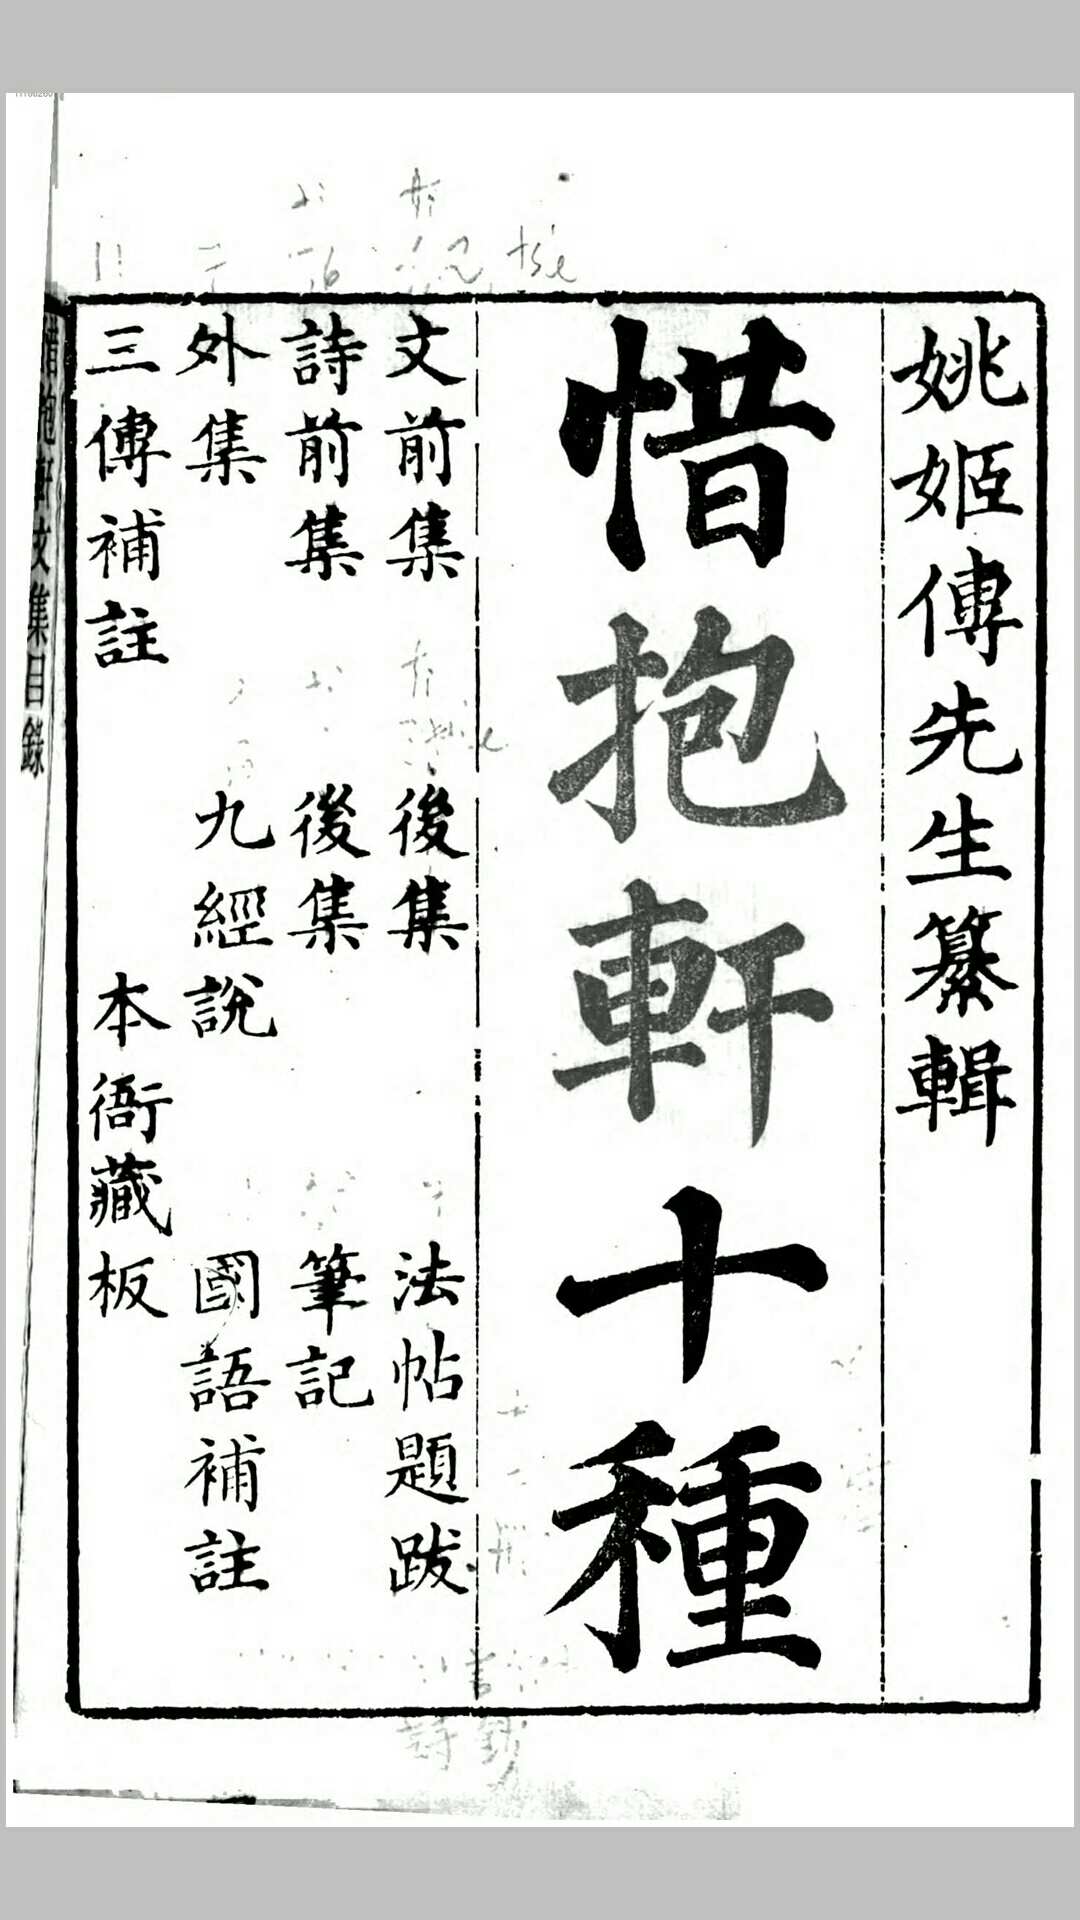 姚姬傳先生纂輯
惜抱軒十種
文前集 後集 法帖題跋
詩前集 後集 筆記
外集 九經說 國語補註
三傳補註 本衙藏板
惜抱軒文集目錄